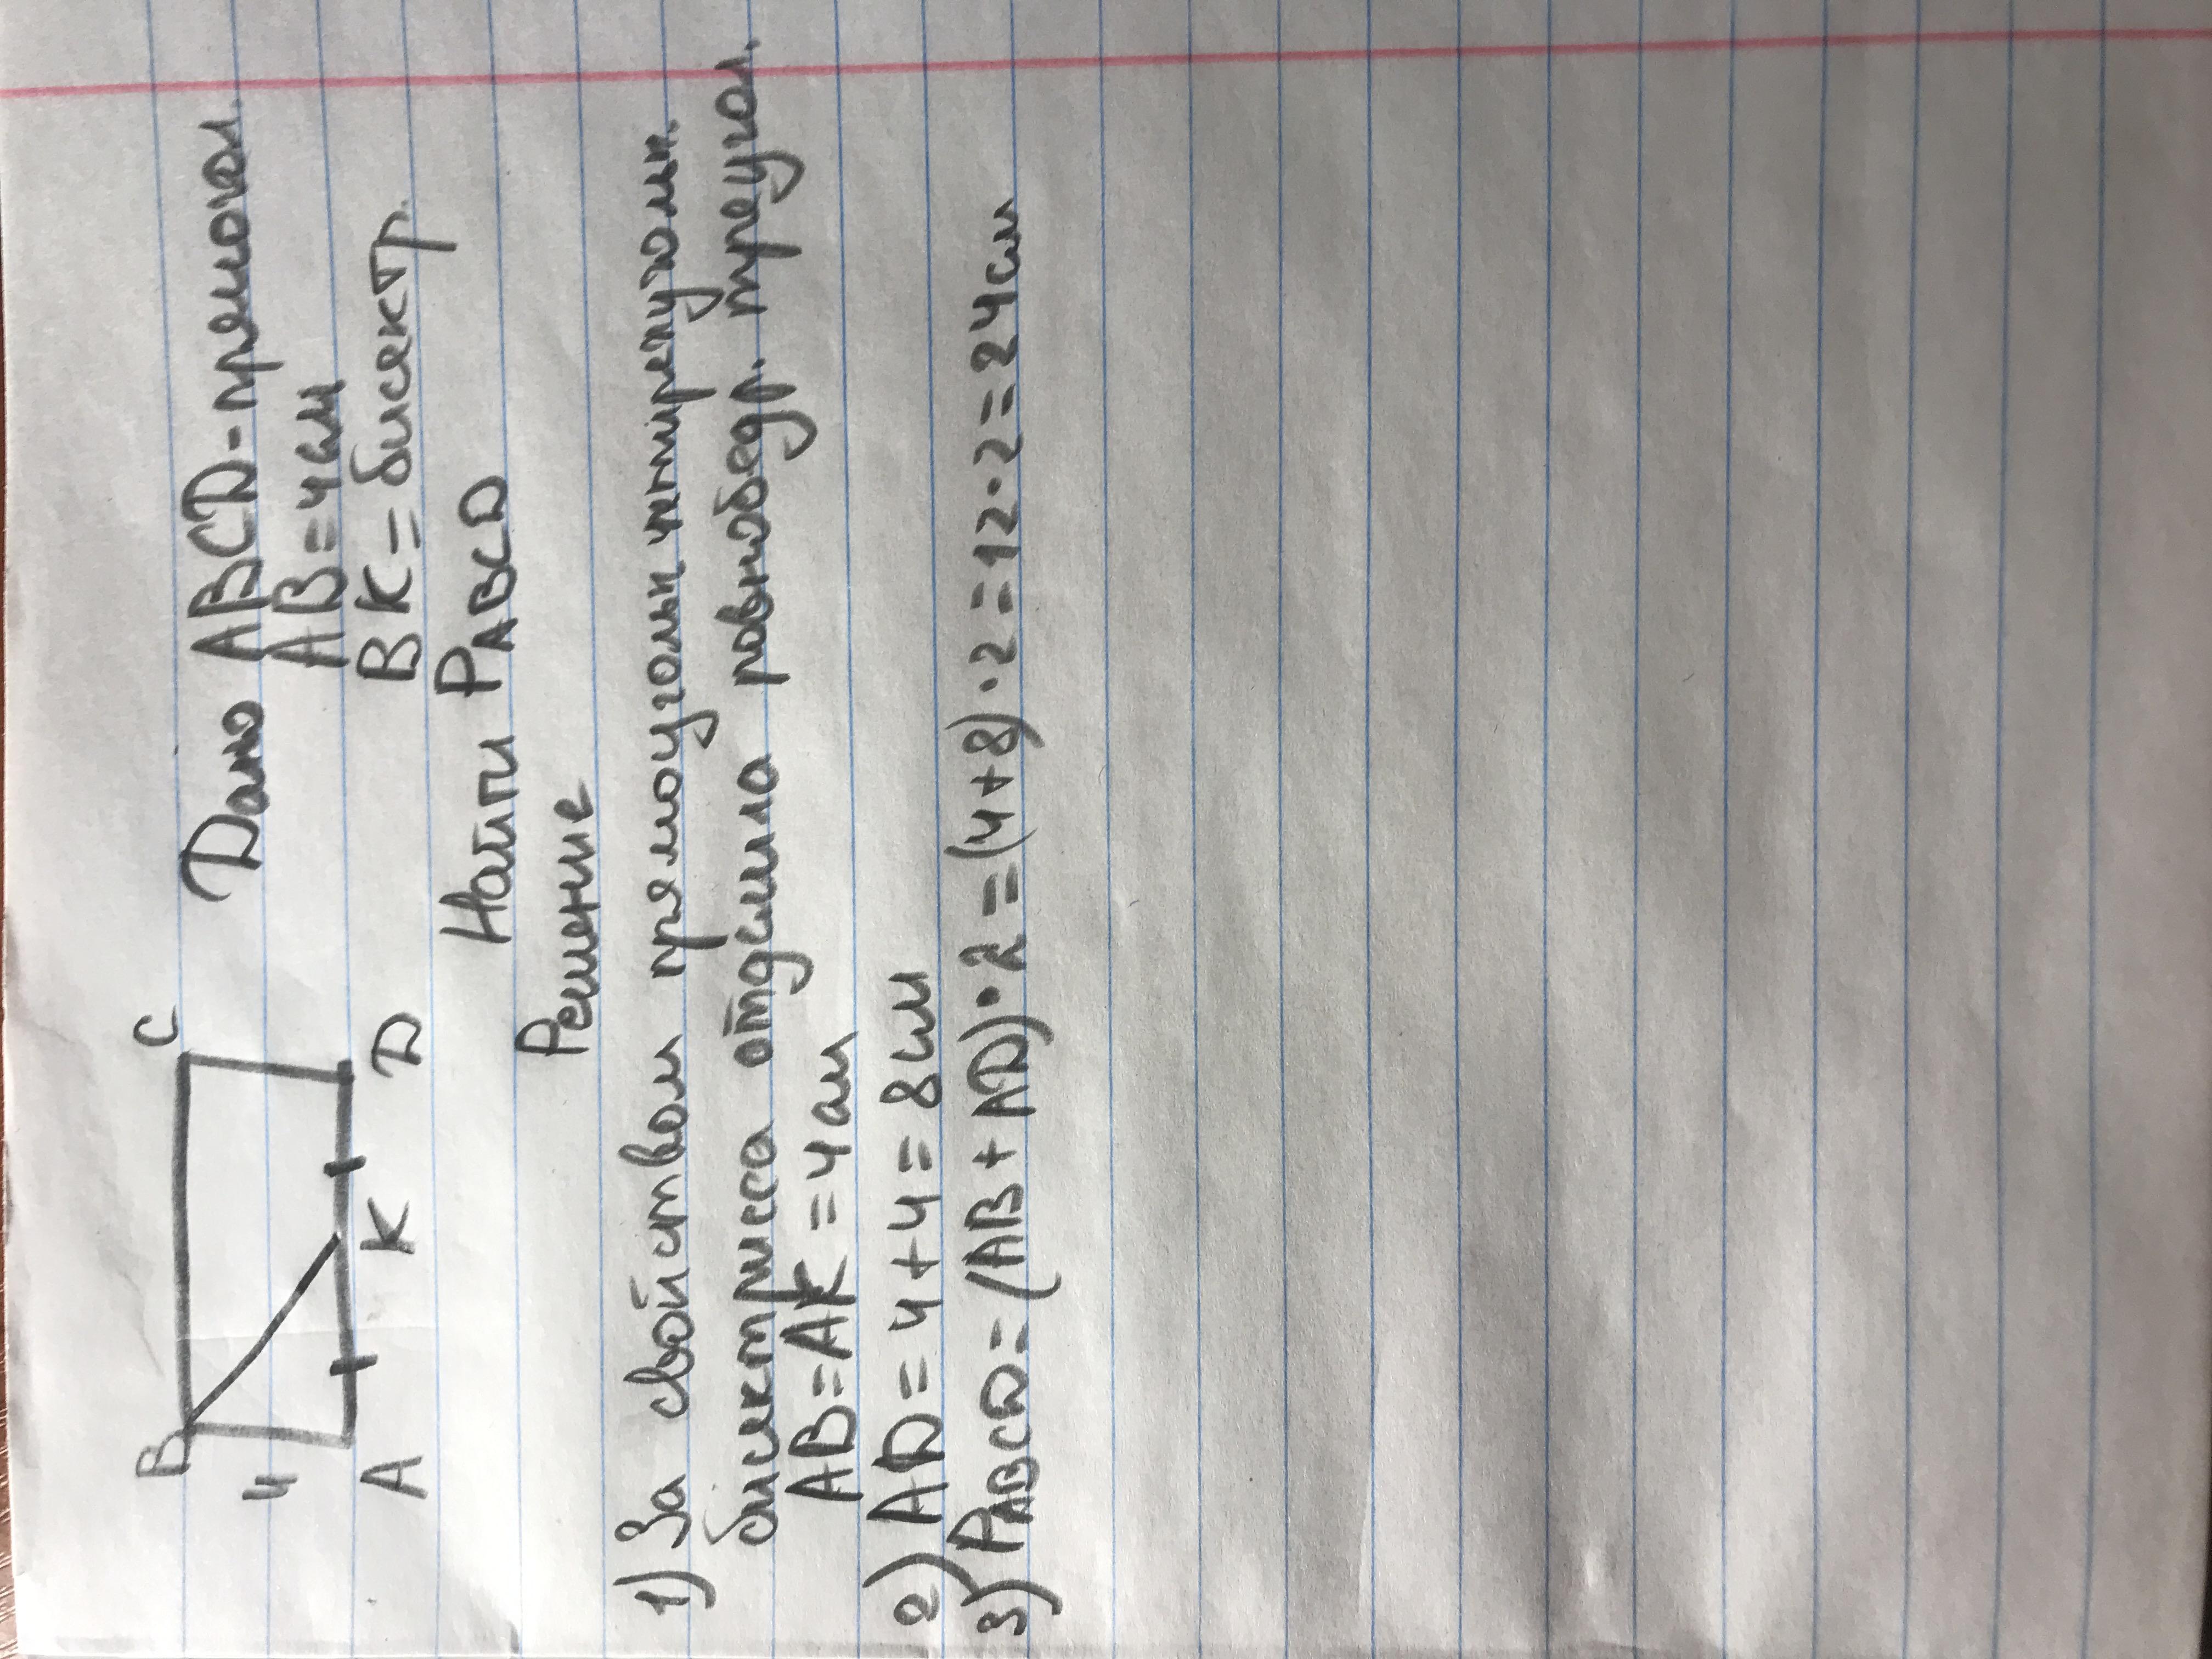 B
C
4
A
K
D
Дано ABCD-прямоугол.
AB=4см
BK=бисектр.
Найти PABCD
Решение
1) За свойством прямоугольн. четырехугольн.
биссектрисса отделила равнобедр. треугол.
AB=AK=4см
2) AD=4+4=8см
3) PABCD=(AB+AD)•2=(4+8)•2=12•2=24см